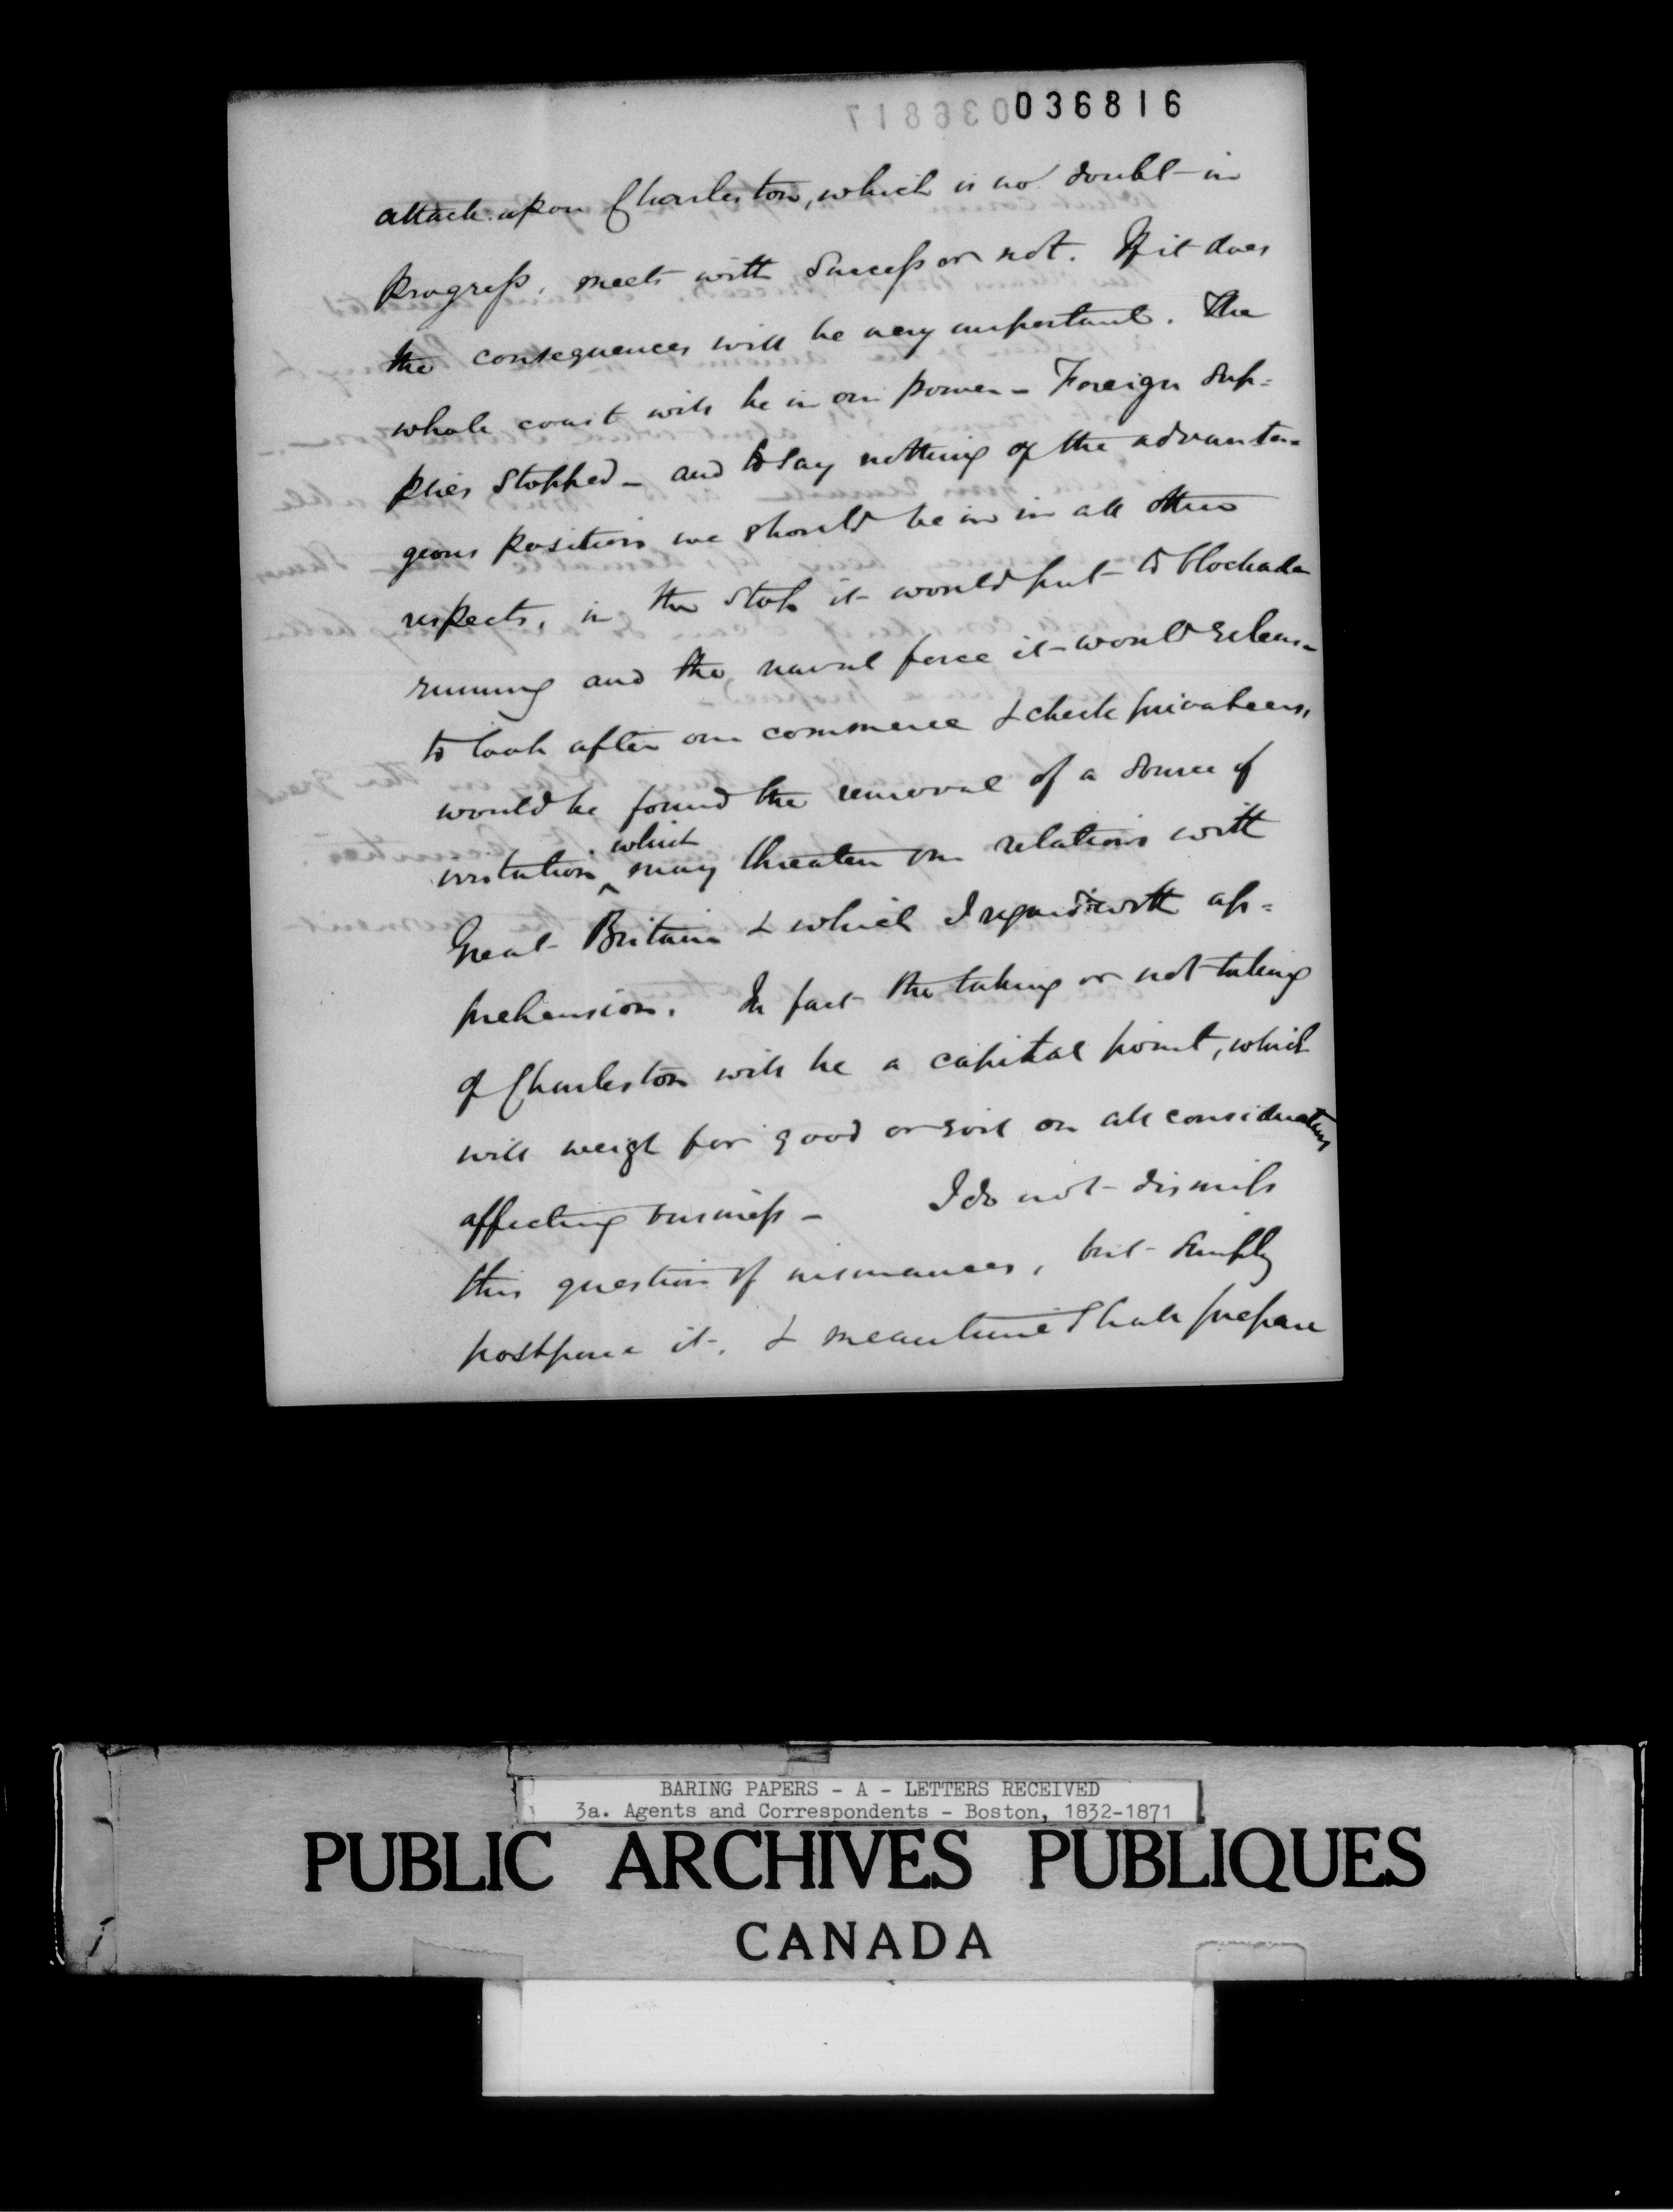 036816
attack upon Charleston, which is no doubt in
progress, meets with success or not. If it does
the consequences will be very important. The
whole coast will be in our power - Foreign sup=
plies stopped - and to say nothing of the advanta=
geous position we should be in in all other
respects, in the stop it would put to blockade
running and the naval force it would release
to look after our commerce & check privateers,
would be found the removal of a source of
irritation which may threaten our relations with
Great Britain & which I regard with ap=
prehension. In fact the taking or not taking
of Charleston will be a capital point, which
will weigh for good or evil on all considerations
affecting business - I do not dismiss
this question of insurances, but simply
postpone it, & meantime shall prepare
BARING PAPERS - A - LETTERS RECEIVED
3a. Agents and Correspondents - Boston, 1832-1871
PUBLIC ARCHIVES PUBLIQUES
CANADA